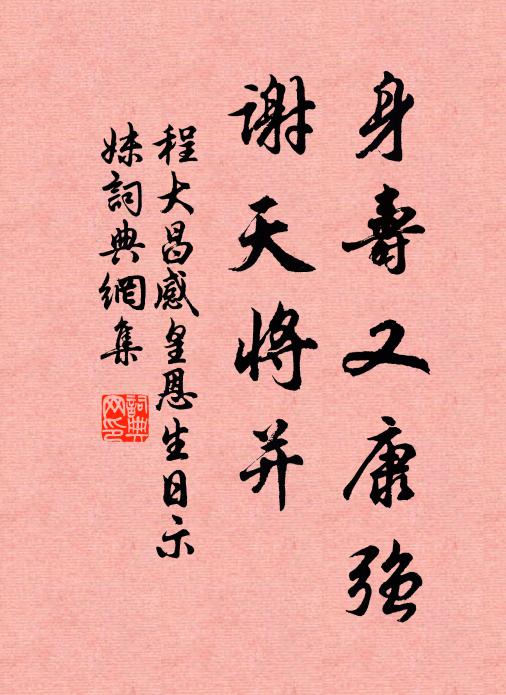 身壽又康强
謝天將并
程大昌感皇恩生日示
妹詞典網集
詞典网印